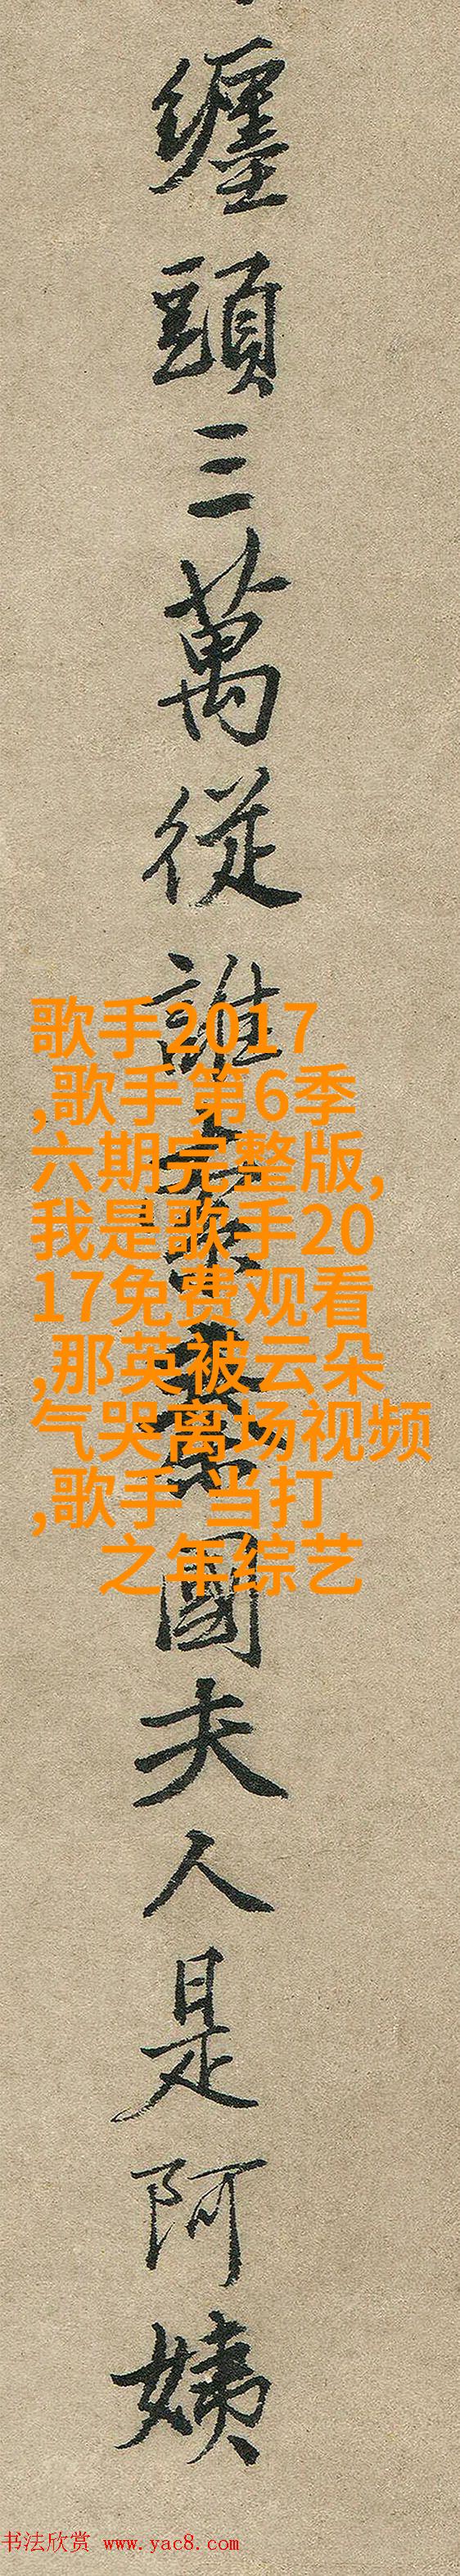 纏頭三萬從誰國夫人是阿姨
歌手2017
,歌手第6季
六期完整版,
我是歌手20
17免费观看
,那英被云朵
气哭离场视频
,歌手 当打
之年综艺
书法欣赏 www.yac8.com